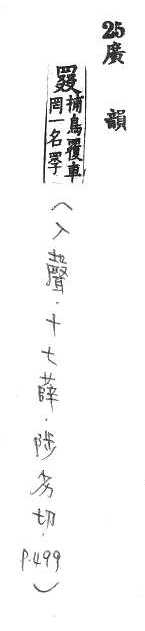 25 廣韻
罬捕鳥覆車
罔一名罦
(入聲．十七薛．陟劣切．P.499)